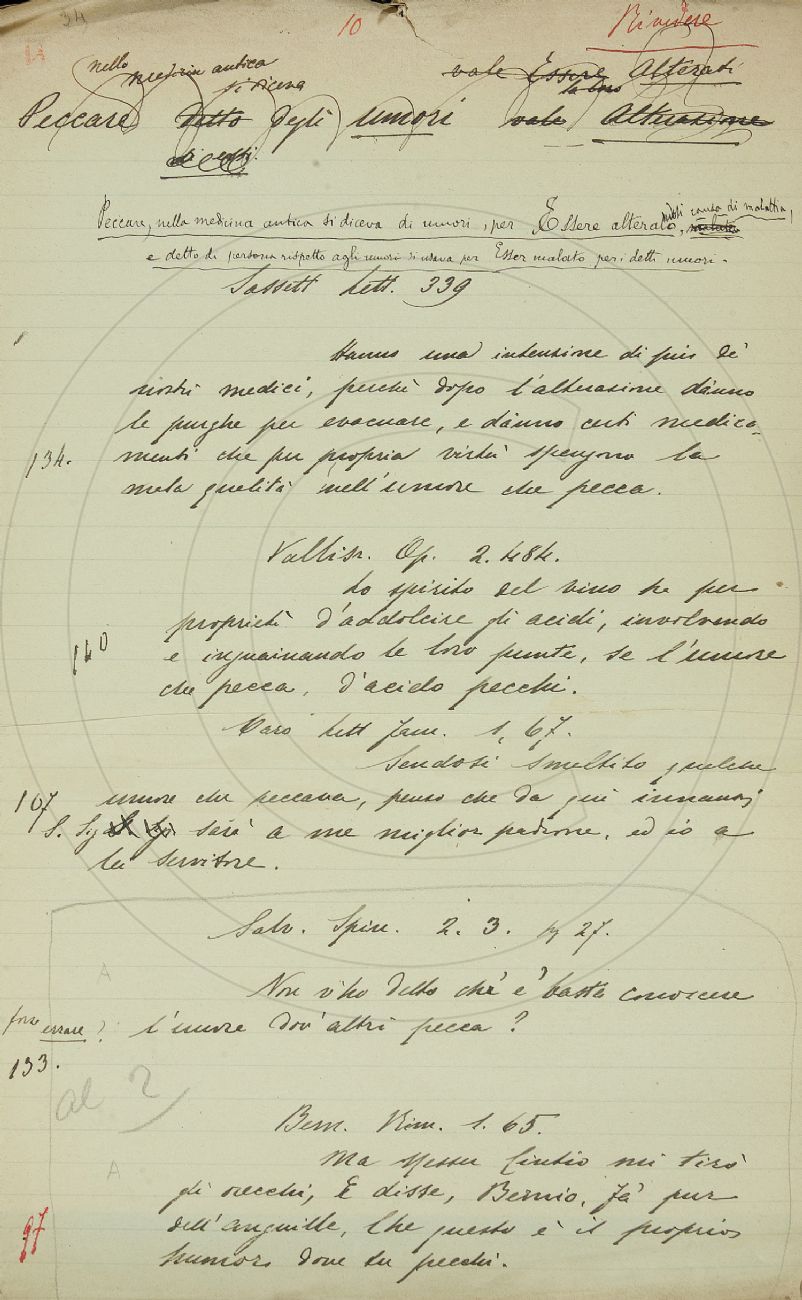 34
14
10
Rivedere
nella medicina antica
si diceva
vale Essere Alterati
la loro
Peccare detto degli umori vale Alterazione
di essi.
Peccare, nella medicina antica si diceva di umori, per Essere alterato, causa di malattia,
e detto di persona rispetto agli umori si usava per Esser malato per i detti umori.
Sassett. Lett. 339
Hanno una intenzione di più de'
nostri medici, perchè dopo l'alterazione dànno
le purghe per evacuare, e dànno certi medica-
134.
menti che per propria virtù spengono la
mala qualità nell'umore che pecca.
Vallisn. Op. 2. 484.
Lo spirito del vino ha per
proprietà d'addolcire gli acidi, involvendo
140
e inguainando le loro punte, se l'umore
che pecca, d'acido pecchi.
Caro Lett. fam. 1, 67.
Sendosi smaltito qualche
107
umore che peccava, penso che da qui innanzi
S. Sig. sarà a me miglior padrone, ed io a
lui servitore.
Salv. Spin. 2. 3. pg 27.
Non v'ho detto che e' basta conoscere
forse errare?
l'umore dov'altri pecca?
133.
al 2
A
Bern. Rim. 1. 65.
Ma Messer Cintio mi tirò
A
gli orecchi, E disse, Bernio, fa' pur
97
dell'anguille, Che questo è il proprio
humor, dove tu pecchi.